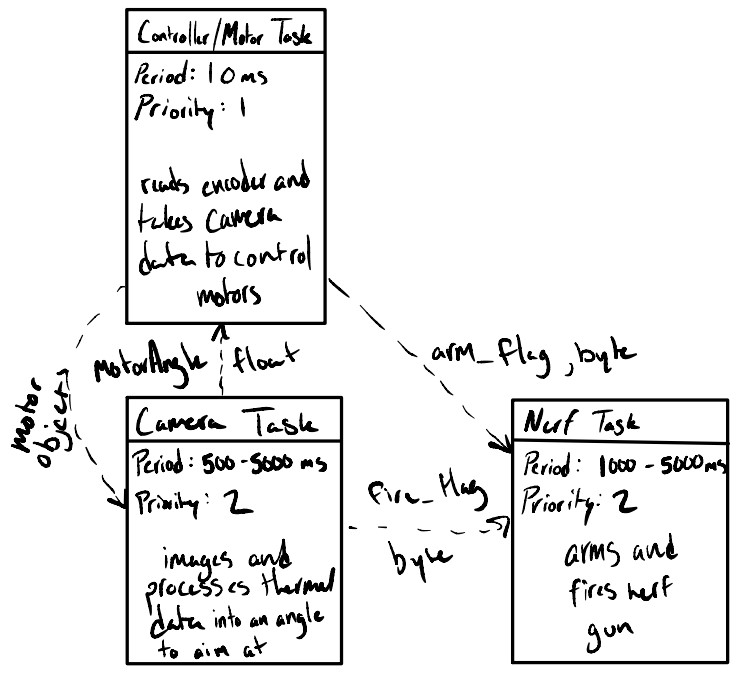 Controller/Motor Task
Period: 10ms
Priority: 1
reads encoder and
takes camera
data to control
motors
motor
objects
motorAngle float
arm_flag, byte
Camera Task
Period: 500-5000 ms
Priority: 2
images and
processes thermal
data into an angle
to aim at
fire_flag
byte
Nerf Task
Period: 1000-5000ms
Priority: 2
arms and
fires nerf
gun